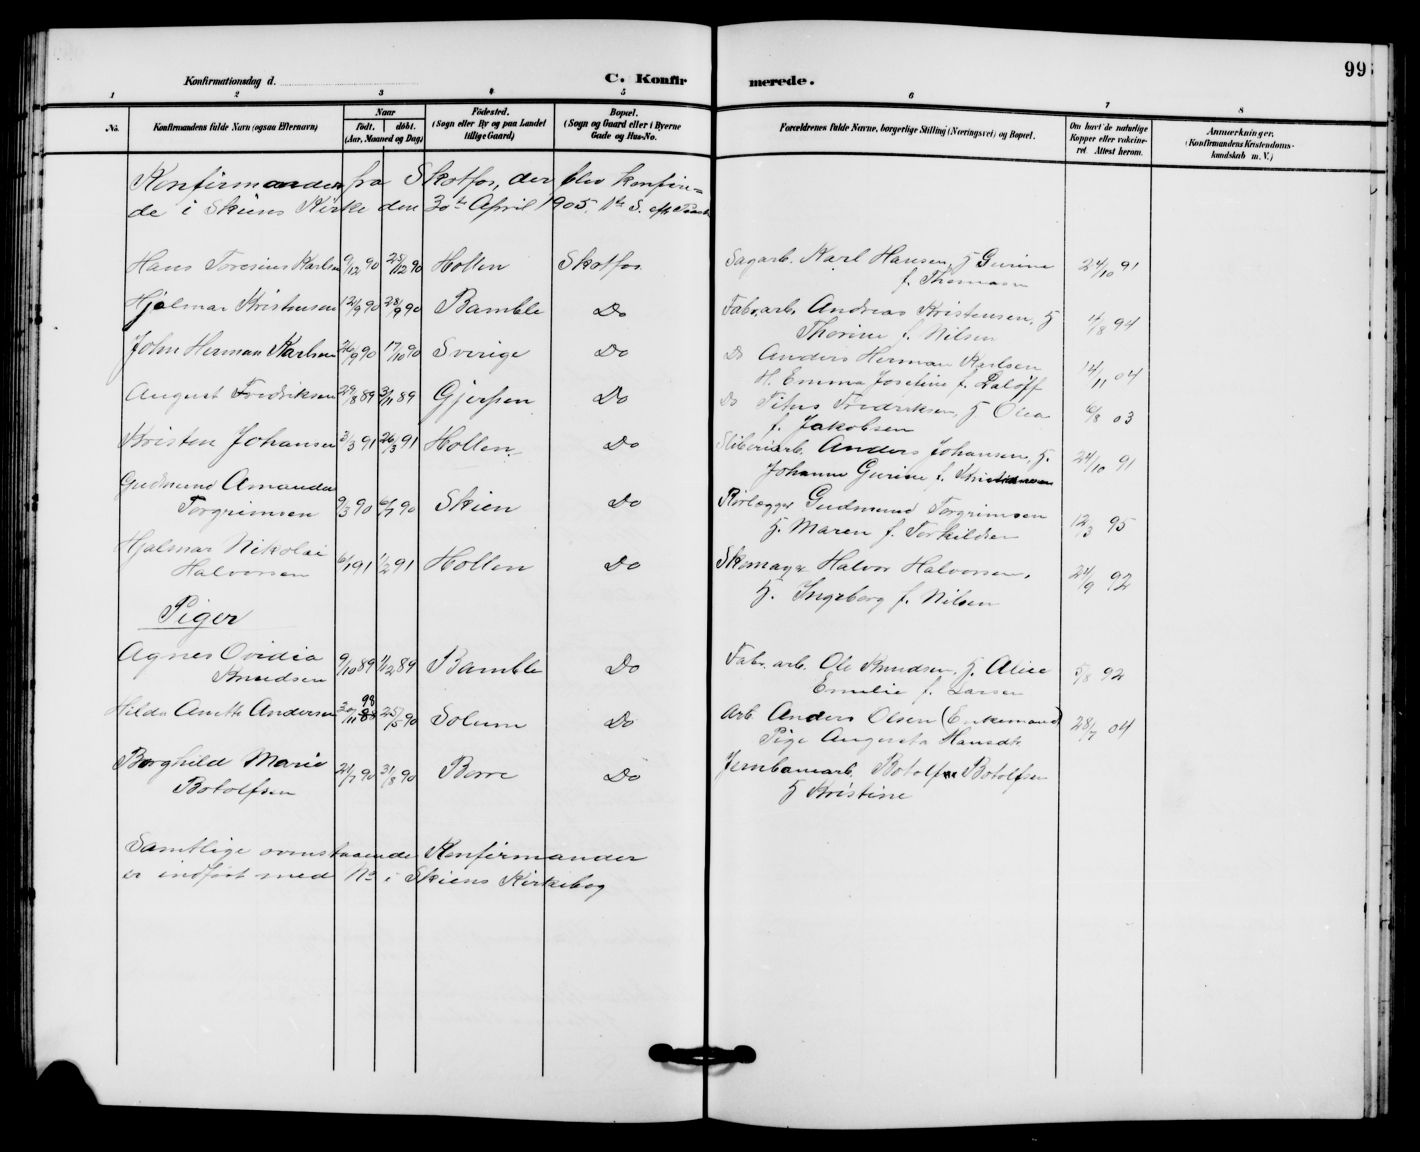 99
Konfirmationsdag d.
C. Konfirmerede.
1 2 3 4 5 6 7 8
No.
Konfirmandens fulde Navn (ogsaa Efternavn)
Naar
født. døbt.
(Aar, Maaned og Dag)
Fødested.
(Sogn eller By og paa Landet
tillige Gaard)
Bopæl.
(Sogn og Gaard eller i Byerne
Gade og Hus-No.
Forældrenes fulde Navne, borgerlige Stilling (Næringsvei) og Bopæl.
Om havt de naturlige
Kopper eller vaccine-
ret. Attest herom.
Anmærkninger.
(Konfirmandens Kristendoms-
kundskab m. V.)
Konfirmander fra Skotfos, der blev konfire=
de i Skiens Kirke den 30te April 1905. 1te S. eft.
Hans Toresius Karlsen 9/12 90 25/12 90 Hollen Skotfos Sagarb. Karl Hansen, H Gurine 24/10 91
f. Thomasen
Hjalmar Kristensen 12/9 90 28/9 90 Bamble Do Fabr. arb. Andreas Kristensen, H 4/8 94
Thorine f. Nilsen
John Herman Karlsen 26/9 90 17/10 90 Sverige Do Do Anders Herman Karlsen 14/11 04
H. Emma Josefine f.
August Fredriksen 29/8 89 3/11 89 Gjerpen Do Do Fredriksen, H Olea 6/8 03
f. Jakobsen
Kristen Johansen 3/3 91 26/3 91 Hollen Do Sliberiarb. Anders Johansen, H. 24/10 91
Johanne Gurine f.
Gudmund Amandus
Torgrimsen 9/3 90 6/7 90 Skien Do Rørlægger Gudmund Torgrimsen 12/3 95
H. Maren f. Torkildsen
Hjalmar Nikolai
Halvorsen 6/1 91 1/2 91 Hollen Do Skomager Halvor Halvorsen, 24/9 92
H. Ingeborg f. Nilsen
Piger
Agnes Ovidia
Knudsen 9/10 89 1/12 89 Bamble Do Fabr. arb. Ole Knudsen, H. Alice 5/8 92
Emelie f. Larsen
Hilda Anette Andersen 30/11 25/5 90 Solum Do Arb. Anders Olsen (Enkemand) 28/7 04
Pige Augusta Hansdt.
Borghild Marie
Botolfsen 21/7 90 31/8 90 Borre Do Jernbanearb. Botolf Botolfsen
H Kristine
Samtlige ovenstaaende Konfirmander
er indført med No i Skiens Kirkebog